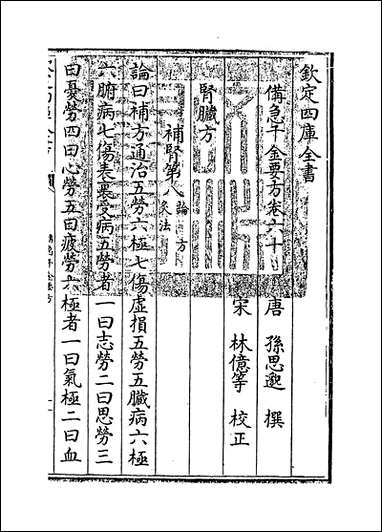 欽定四庫全書
備急千金要方卷六十
唐 孫思邈 撰
宋 林億等 校正
腎臟方
補腎第八 論 方 灸法
論曰補方通治五勞六極七傷虛損五勞五臟病六極
六腑病七傷表裏受病五勞者一曰志勞二曰思勞三
曰憂勞四曰心勞五曰疲勞六極者一曰氣極二曰血